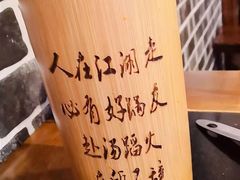 人在江湖走
必有好锅友
赴汤蹈火